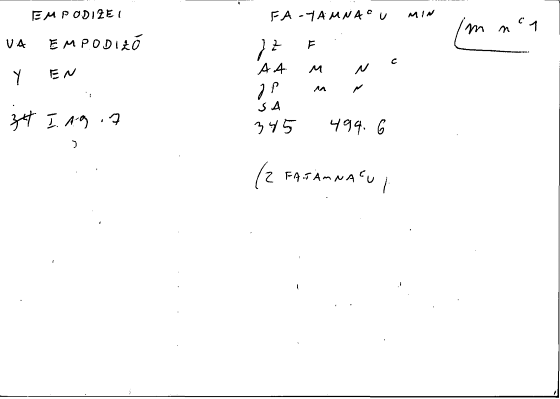 EMPODIZEI
VA EMPODIZŌ
Y EN
34 I.19.7
FA-TAMNAᶜU MIN
JZ F
AA M N C
JP M N
SA
345 494.6
(Z FA-TAMNAᶜU)
(m nᶜ1